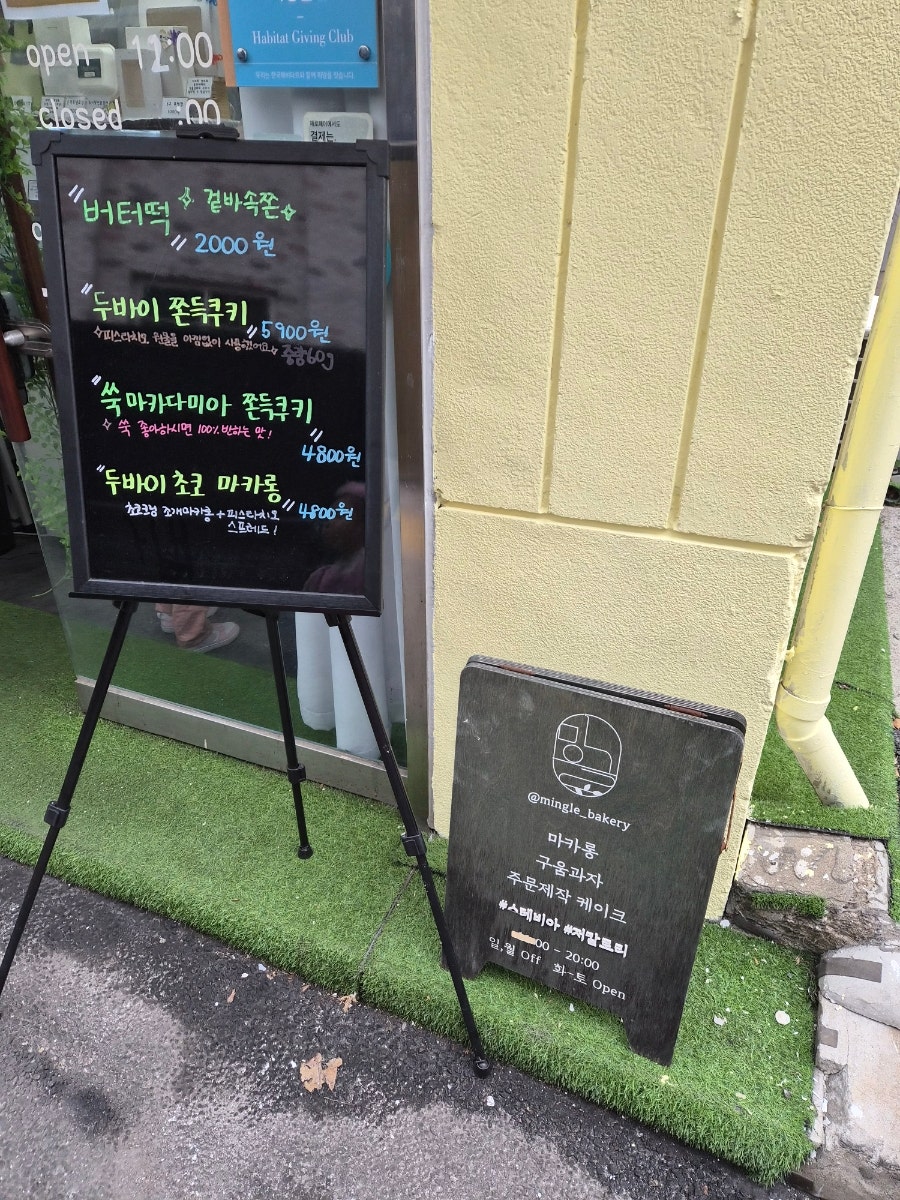 open 12:00
closed :00
Habitat Giving Club
결제는,
"버터떡 겉바속쫀
" 2000원
"두바이 쫀득쿠키
" 5900원
피스타치오 원물을 아낌없이 사용했어요
중량60g
"쑥마카다미아 쫀득쿠키
쑥 좋아하시면 100% 반하는 맛!
" 4800원
"두바이 초코 마카롱
" 4800원
초코 조개마카롱 + 피스타치오
스프레드!
@mingle_bakery
마카롱
구움과자
주문제작 케이크
#스테비아 #저칼로리
00 - 20:00
일,월 Off 화-토 Open